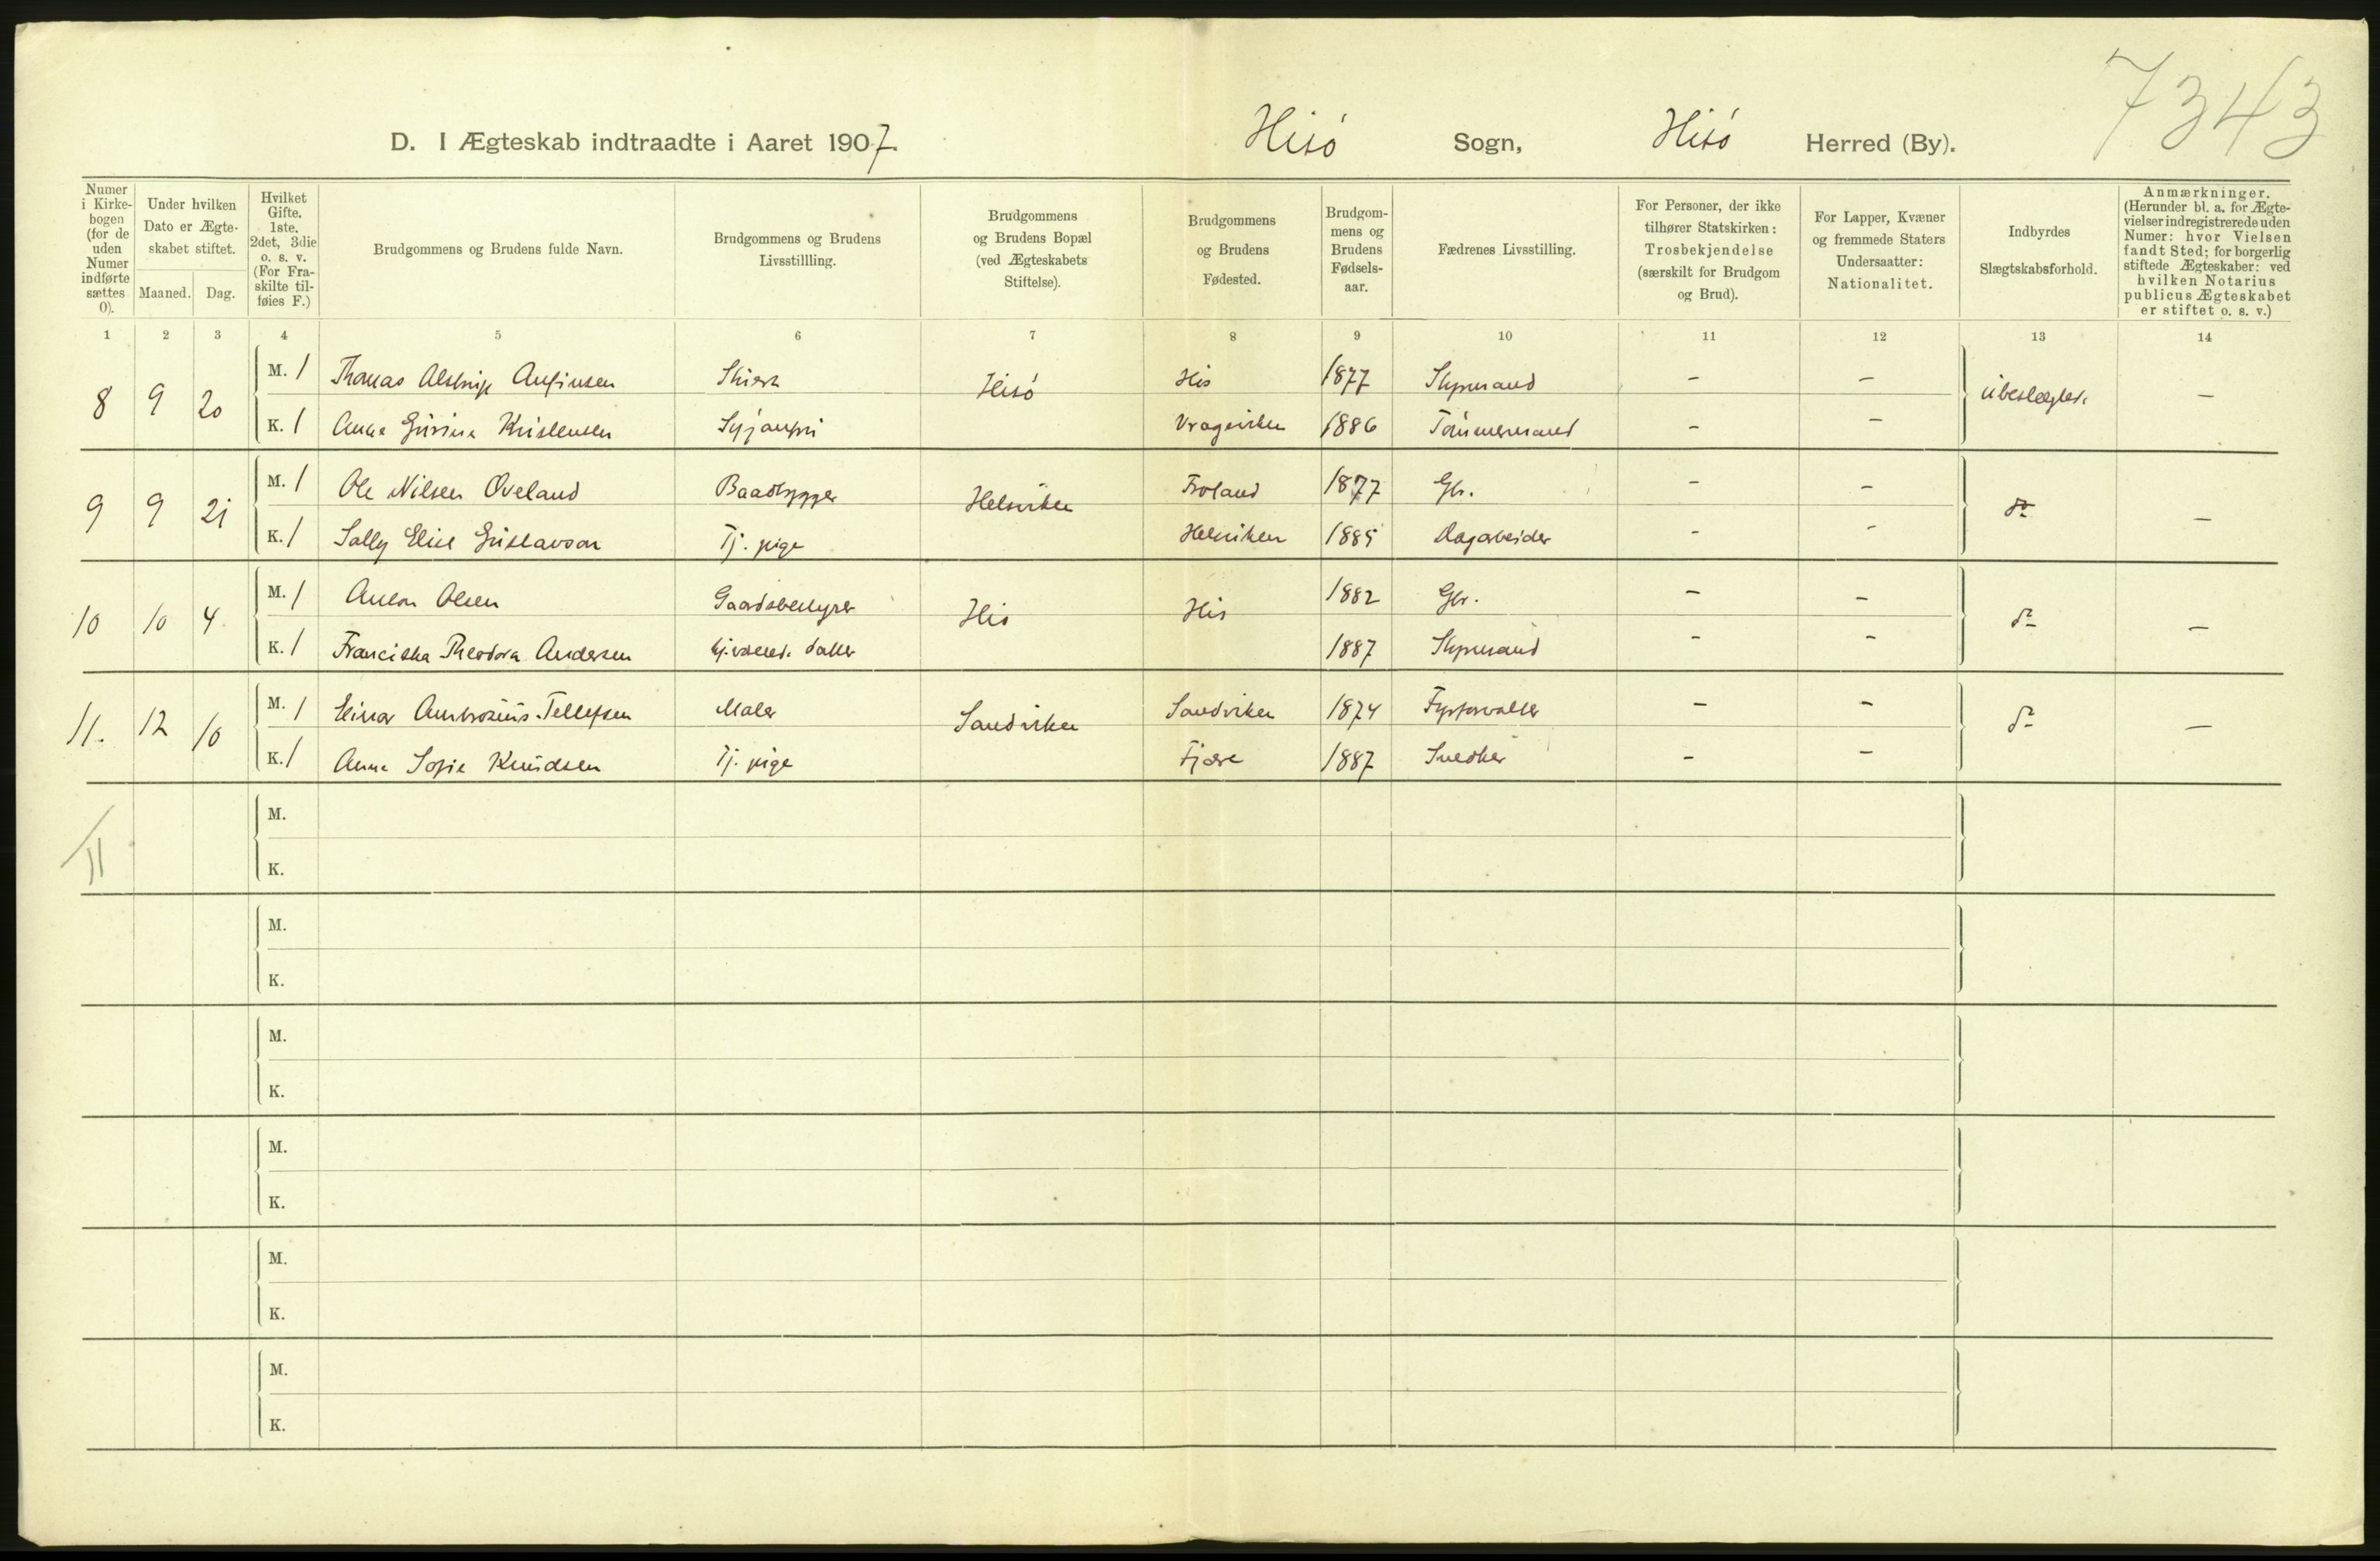 7343
D. I Ægteskab indtraadte i Aaret 1907. Hisó Sogn, Hisó Herred (By).
Numer i Kirkebogen (for de uden Numer indførte sættes 0).
Under hvilken Dato er Ægteskabet stiftet.
Maaned. Dag.
Hvilket Gifte. 1ste. 2det, 3die o. s. v. (For Fraskilte tilføies F.)
Brudgommens og Brudens fulde Navn.
Brudgommens og Brudens Livsstillling.
Brudgommens og Brudens Bopæl (ved Ægteskabets Stiftelse).
Brudgommens og Brudens Fødested.
Brudgommens og Brudens Fødselsaar.
Fædrenes Livsstilling.
For Personer, der ikke tilhører Statskirken: Trosbekjendelse (særskilt for Brudgom og Brud).
For Lapper, Kvæner og fremmede Staters Undersaatter: Nationalitet.
Indbyrdes Slægtskabsforhold.
Anmærkninger. (Herunder bl. a. for Ægtevielser indregistrerede uden Numer: hvor Vielsen fandt Sted; for borgerlig stiftede Ægteskaber: ved hvilken Notarius publicus Ægteskabet er stiftet o. s. v.)
1 2 3 4 5 6 7 8 9 10 11 12 13 14
8 9 20 M. 1 Thomas Alstrup Anfinsen Hisó His 1877 Skipmand – – ubeslægtet. –
K. 1 Anna Gurine Kristensen Vragviken 1886 Tömmermand – –
9 9 21 M. 1 Ole Nilsen Oveland Baadbygger Helsviken Froland 1877 Gbr. – – do –
K. 1 Sally Elise Gustavson Tj. pige Helsviken 1885 Dagarbeider – –
10 10 4 M. 1 Anton Olsen Gaardsbestyrer His His 1882 Gbr. – – do –
K. 1 Franciska Theodora Andersen Hj. værd. datter 1887 Skipmand – –
11. 12 10 M. 1 Einar Ambrosius Tellefsen Maler Sandviken Sandviken 1874 Fyrforvalter – – do –
K. 1 Anna Sofie Knudsen Tj. pige Fjære 1887 Snedker – –
M.
11
K.
M.
K.
M.
K.
M.
K.
M.
K.
M.
K.